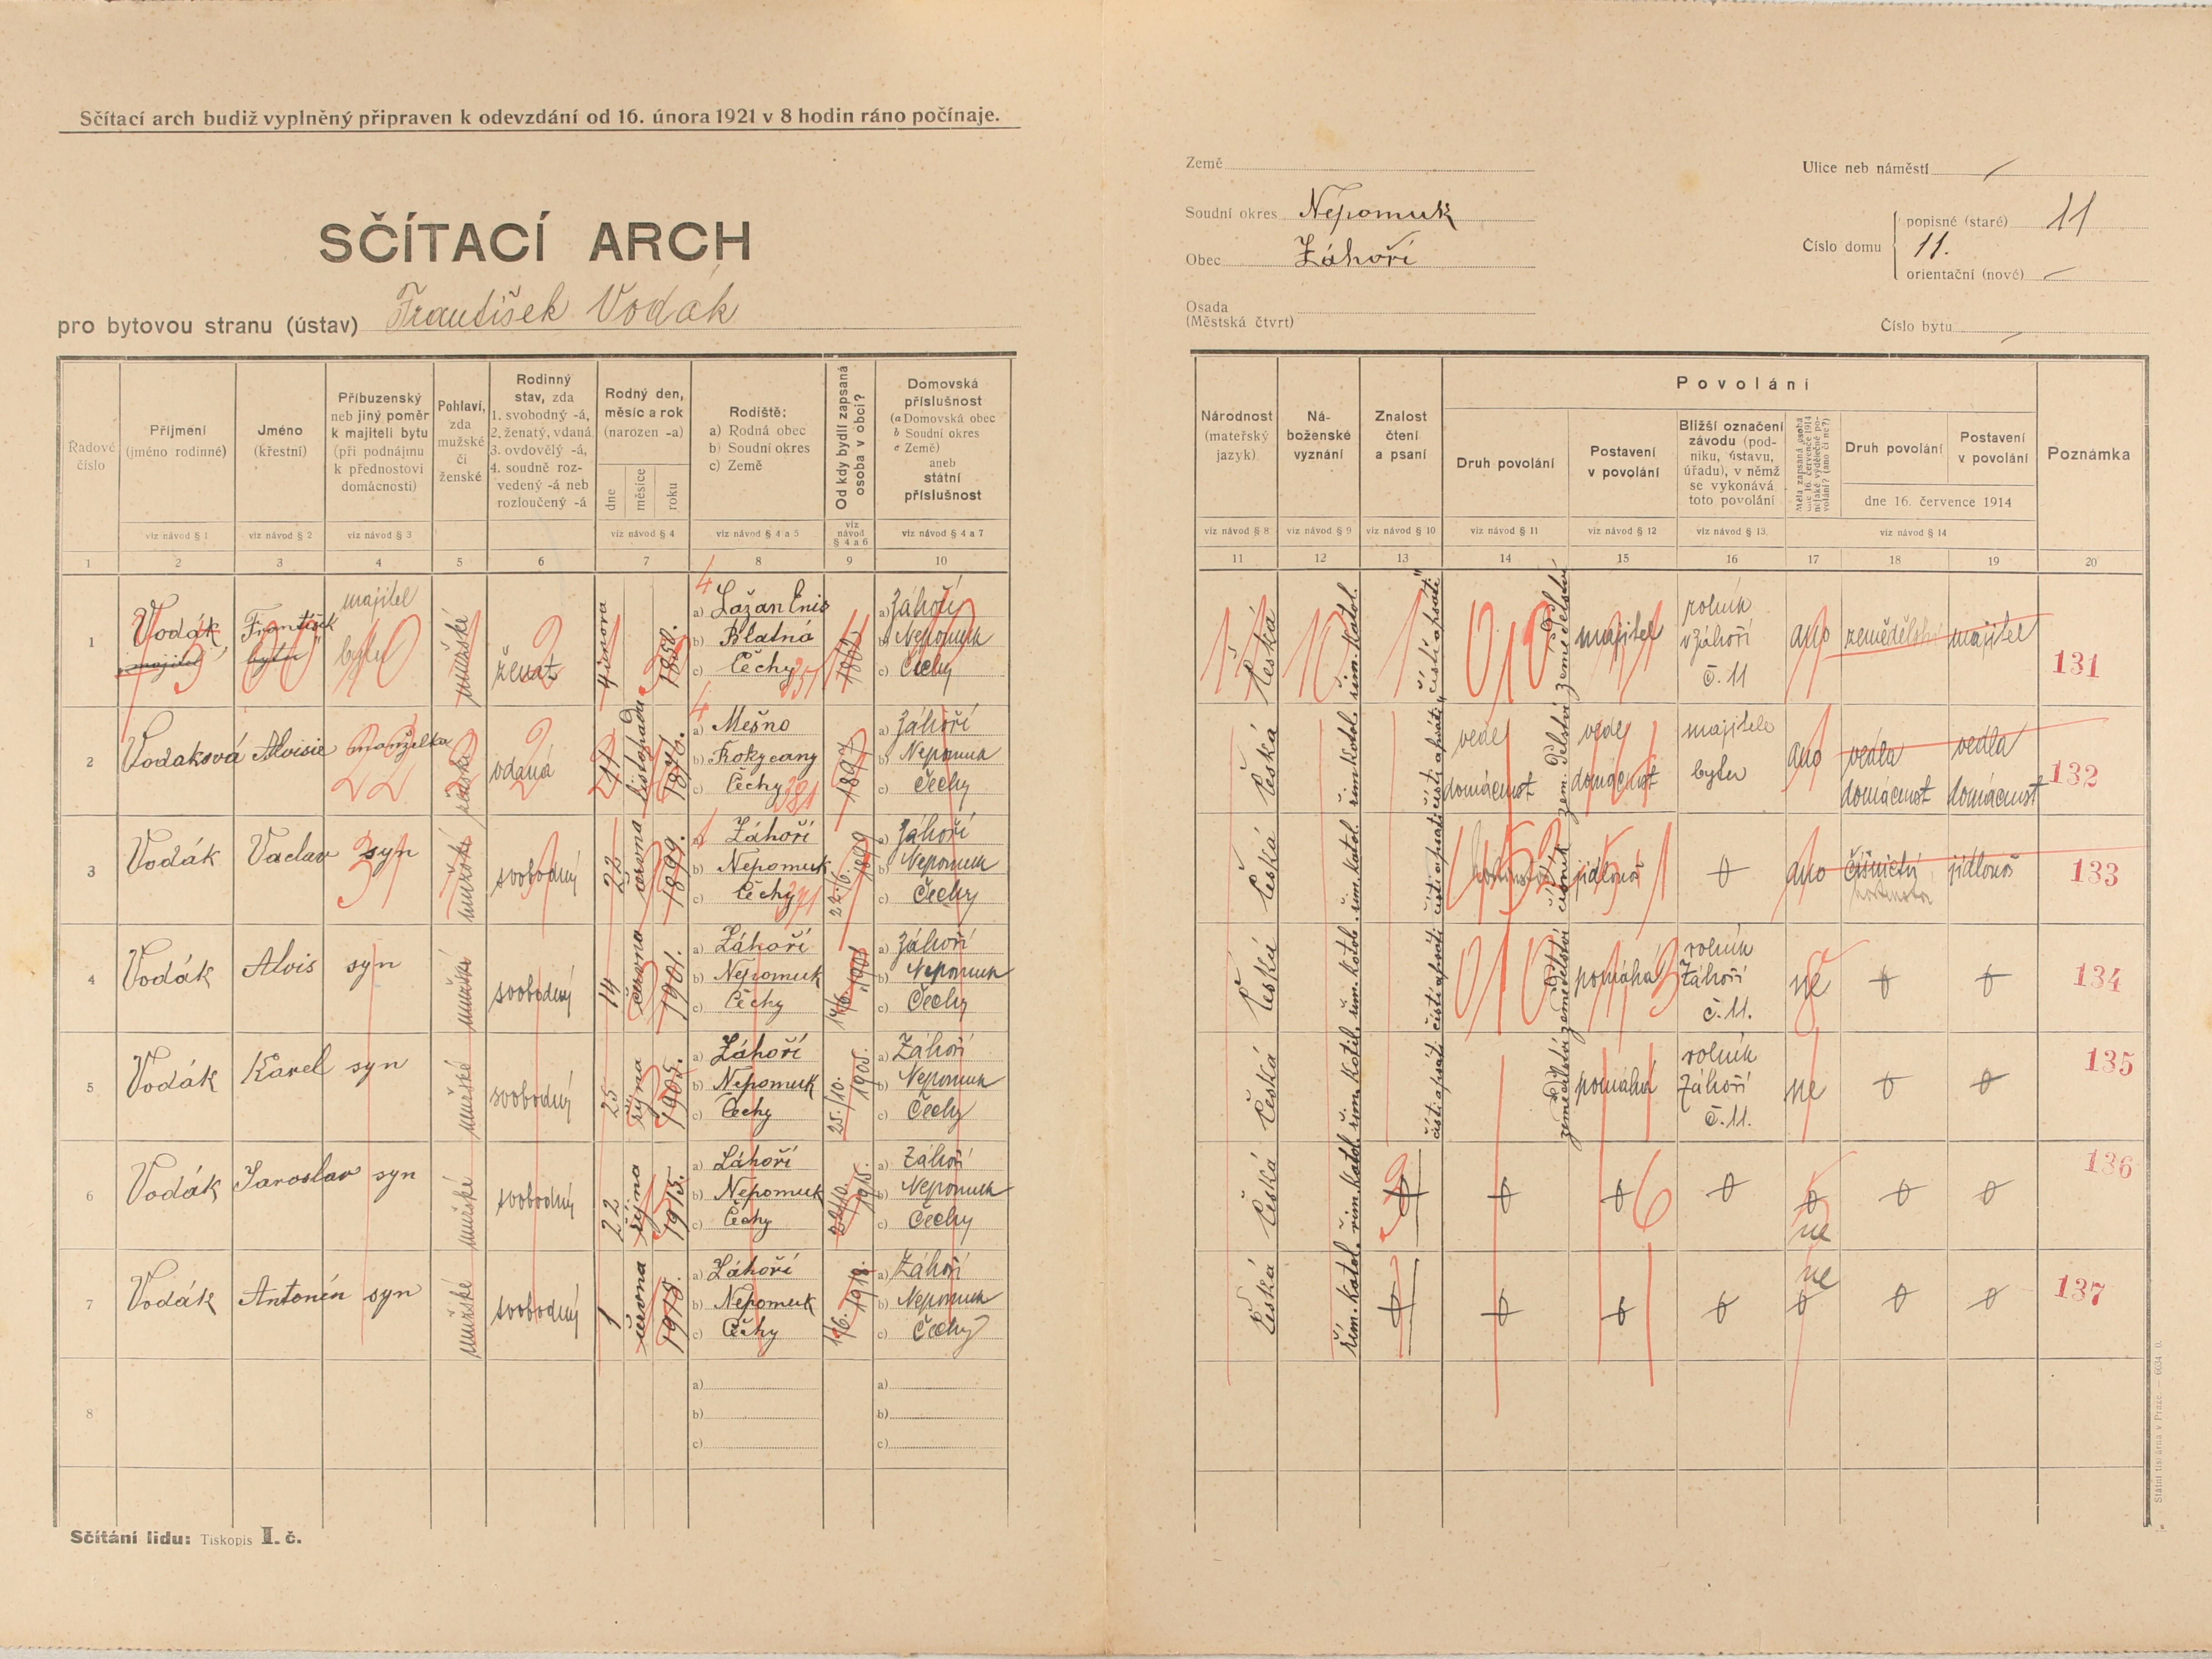 Sčítací arch budiž vyplněný připraven k odevzdání od 16. února 1921 v 8 hodin ráno počínaje.
SČÍTACÍ ARCH
pro bytovou stranu (ústav) František Vodák
Země
Soudní okres Nepomuk
Obec Záhoří
Osada
(Městská čtvrt)
Ulice neb náměstí
Číslo domu
popisné (staré) 11
11.
orientační (nové)
Číslo bytu
Řadové číslo
Příjmení (jméno rodinné)
Jméno (křestní)
Příbuzenský neb jiný poměr k majiteli bytu (při podnájmu k přednostovi domácnosti)
Pohlaví, zda mužské či ženské
Rodinný stav, zda 1. svobodný -á, 2. ženatý, vdaná 3. ovdovělý -á, 4. soudně rozvedený -á neb rozloučený -á
Rodný den, měsíc a rok (narozen -a)
dne měsíce roku
Rodiště: a) Rodná obec b) Soudní okres c) Země
Od kdy bydlí zapsaná osoba v obci?
Domovská příslušnost (a Domovská obec b Soudní okres c Země) aneb státní příslušnost
Národnost (mateřský jazyk)
Náboženské vyznání
Znalost čtení a psaní
Povolání
Druh povolání
Postavení v povolání
Bližší označení závodu (podniku, ústavu, úřadu), v němž se vykonává toto povolání
Měla zapsaná osoba dne 16. července 1914 nějaké výdělečné povolání? (ano či ne?)
Druh povolání
Postavení v povolání
dne 16. července 1914
Poznámka
viz návod § 1 viz návod § 2 viz návod § 3 viz návod § 4 viz návod § 4 a 5 viz návod § 4 a 6 viz návod § 4 a 7
viz návod § 8 viz návod § 9 viz návod § 10 viz návod § 11 viz návod § 12 viz návod § 13 viz návod § 14
1 2 3 4 5 6 7 8 9 10
11 12 13 14 15 16 17 18 19 20
1 Vodák František majitel bytu mužské ženat 4 února 1850.
majitel bytu
a) Lažan Enis b) Blatná c) Čechy
a) Záhoří b) Nepomuk c) Čechy
česká řím. katol. čísti a psáti zemědělství majitel rolník v Záhoří č. 11 ano zemědělství majitel 131
2 Vodaková Aloisie manželka ženské vdaná listopadu 1876.
a) Mešno b) Rokycany c) Čechy 1897
a) Záhoří b) Nepomuk c) Čechy
česká řím. katol. čísti a psáti vede domácnost vede domácnost majitele bytu ano vedla domácnost vedla domácnost 132
3 Vodák Vaclav syn mužské svobodný 22 června 1899.
a) Záhoří b) Nepomuk c) Čechy 22./6. 1899
a) Záhoří b) Nepomuk c) Čechy
česká řím. katol. čísti a psáti číšník jídlonoš ano číšnictví jídlonoš 133
4 Vodák Alois syn mužské svobodný 14 června 1901.
a) Záhoří b) Nepomuk c) Čechy 14/6. 1901
a) Záhoří b) Nepomuk c) Čechy
česká řím. katol. čísti a psáti zemědělství pomáhá rolník Záhoří č. 11. ne 134
5 Vodák Karel syn mužské svobodný 25 října 1905.
a) Záhoří b) Nepomuk c) Čechy 25./10. 1905.
a) Záhoří b) Nepomuk c) Čechy
česká řím. katol. čísti a psáti zemědělství pomáhá rolník Záhoří č. 11. ne 135
6 Vodák Jaroslav syn mužské svobodný 22 října 1915.
a) Záhoří b) Nepomuk c) Čechy 22/10. 1915.
a) Záhoří b) Nepomuk c) Čechy
česká řím. katol. ne 136
7 Vodák Antonín syn mužské svobodný 1 června 1918.
a) Záhoří b) Nepomuk c) Čechy 1/6. 1918.
a) Záhoří b) Nepomuk c) Čechy
česká řím. katol. ne 137
8 a) b) c) a) b) c)
Sčítání lidu: Tiskopis I. č.
Státní tiskárna v Praze. — 6034 0.